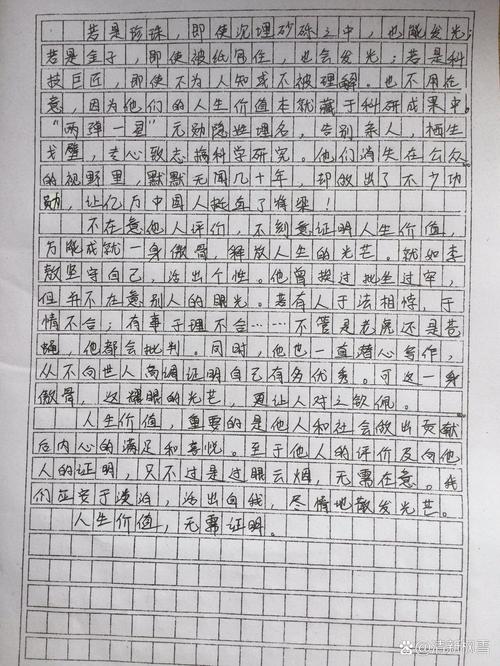 若是珍珠，即使沉埋砂砾之中，也能发光；
若是金子，即使被纸包住，也会发光；若是科
技巨匠，即使不为人知或不被理解。也不用在
意，因为他们的人生价值本就藏于科研成果中。
“两弹一星”元勋隐姓埋名，告别亲人，栖生
戈壁，专心致志搞科学研究。他们消失在公众
的视野里，默默无闻几十年，却做出了不少功
勋，让亿万中国人挺直了脊梁！
不在意他人评价，不刻意证明人生价值，
方能成就一身傲骨，释放人生的光芒。就如李
敖坚守自己，活出个性。他曾挨过批坐过牢，
但并不在意别人的眼光。若有人于法相悖，于
情不合；有事于理不合……不管是老虎还是苍
蝇，他都会批判。同时，他也一直潜心写作，
从不向世人高调证明自己有多优秀。可这一身
傲骨，这耀眼的光芒，更让人对之钦佩。
人生价值，重要的是他人和社会做出贡献
后内心的满足和喜悦。至于他人的评价及向他
人的证明，只不过是过眼云烟，无需在意。我
们应安于淡泊，活出自我，尽情地散发光芒。
人生价值，无需证明。
清新枫雪